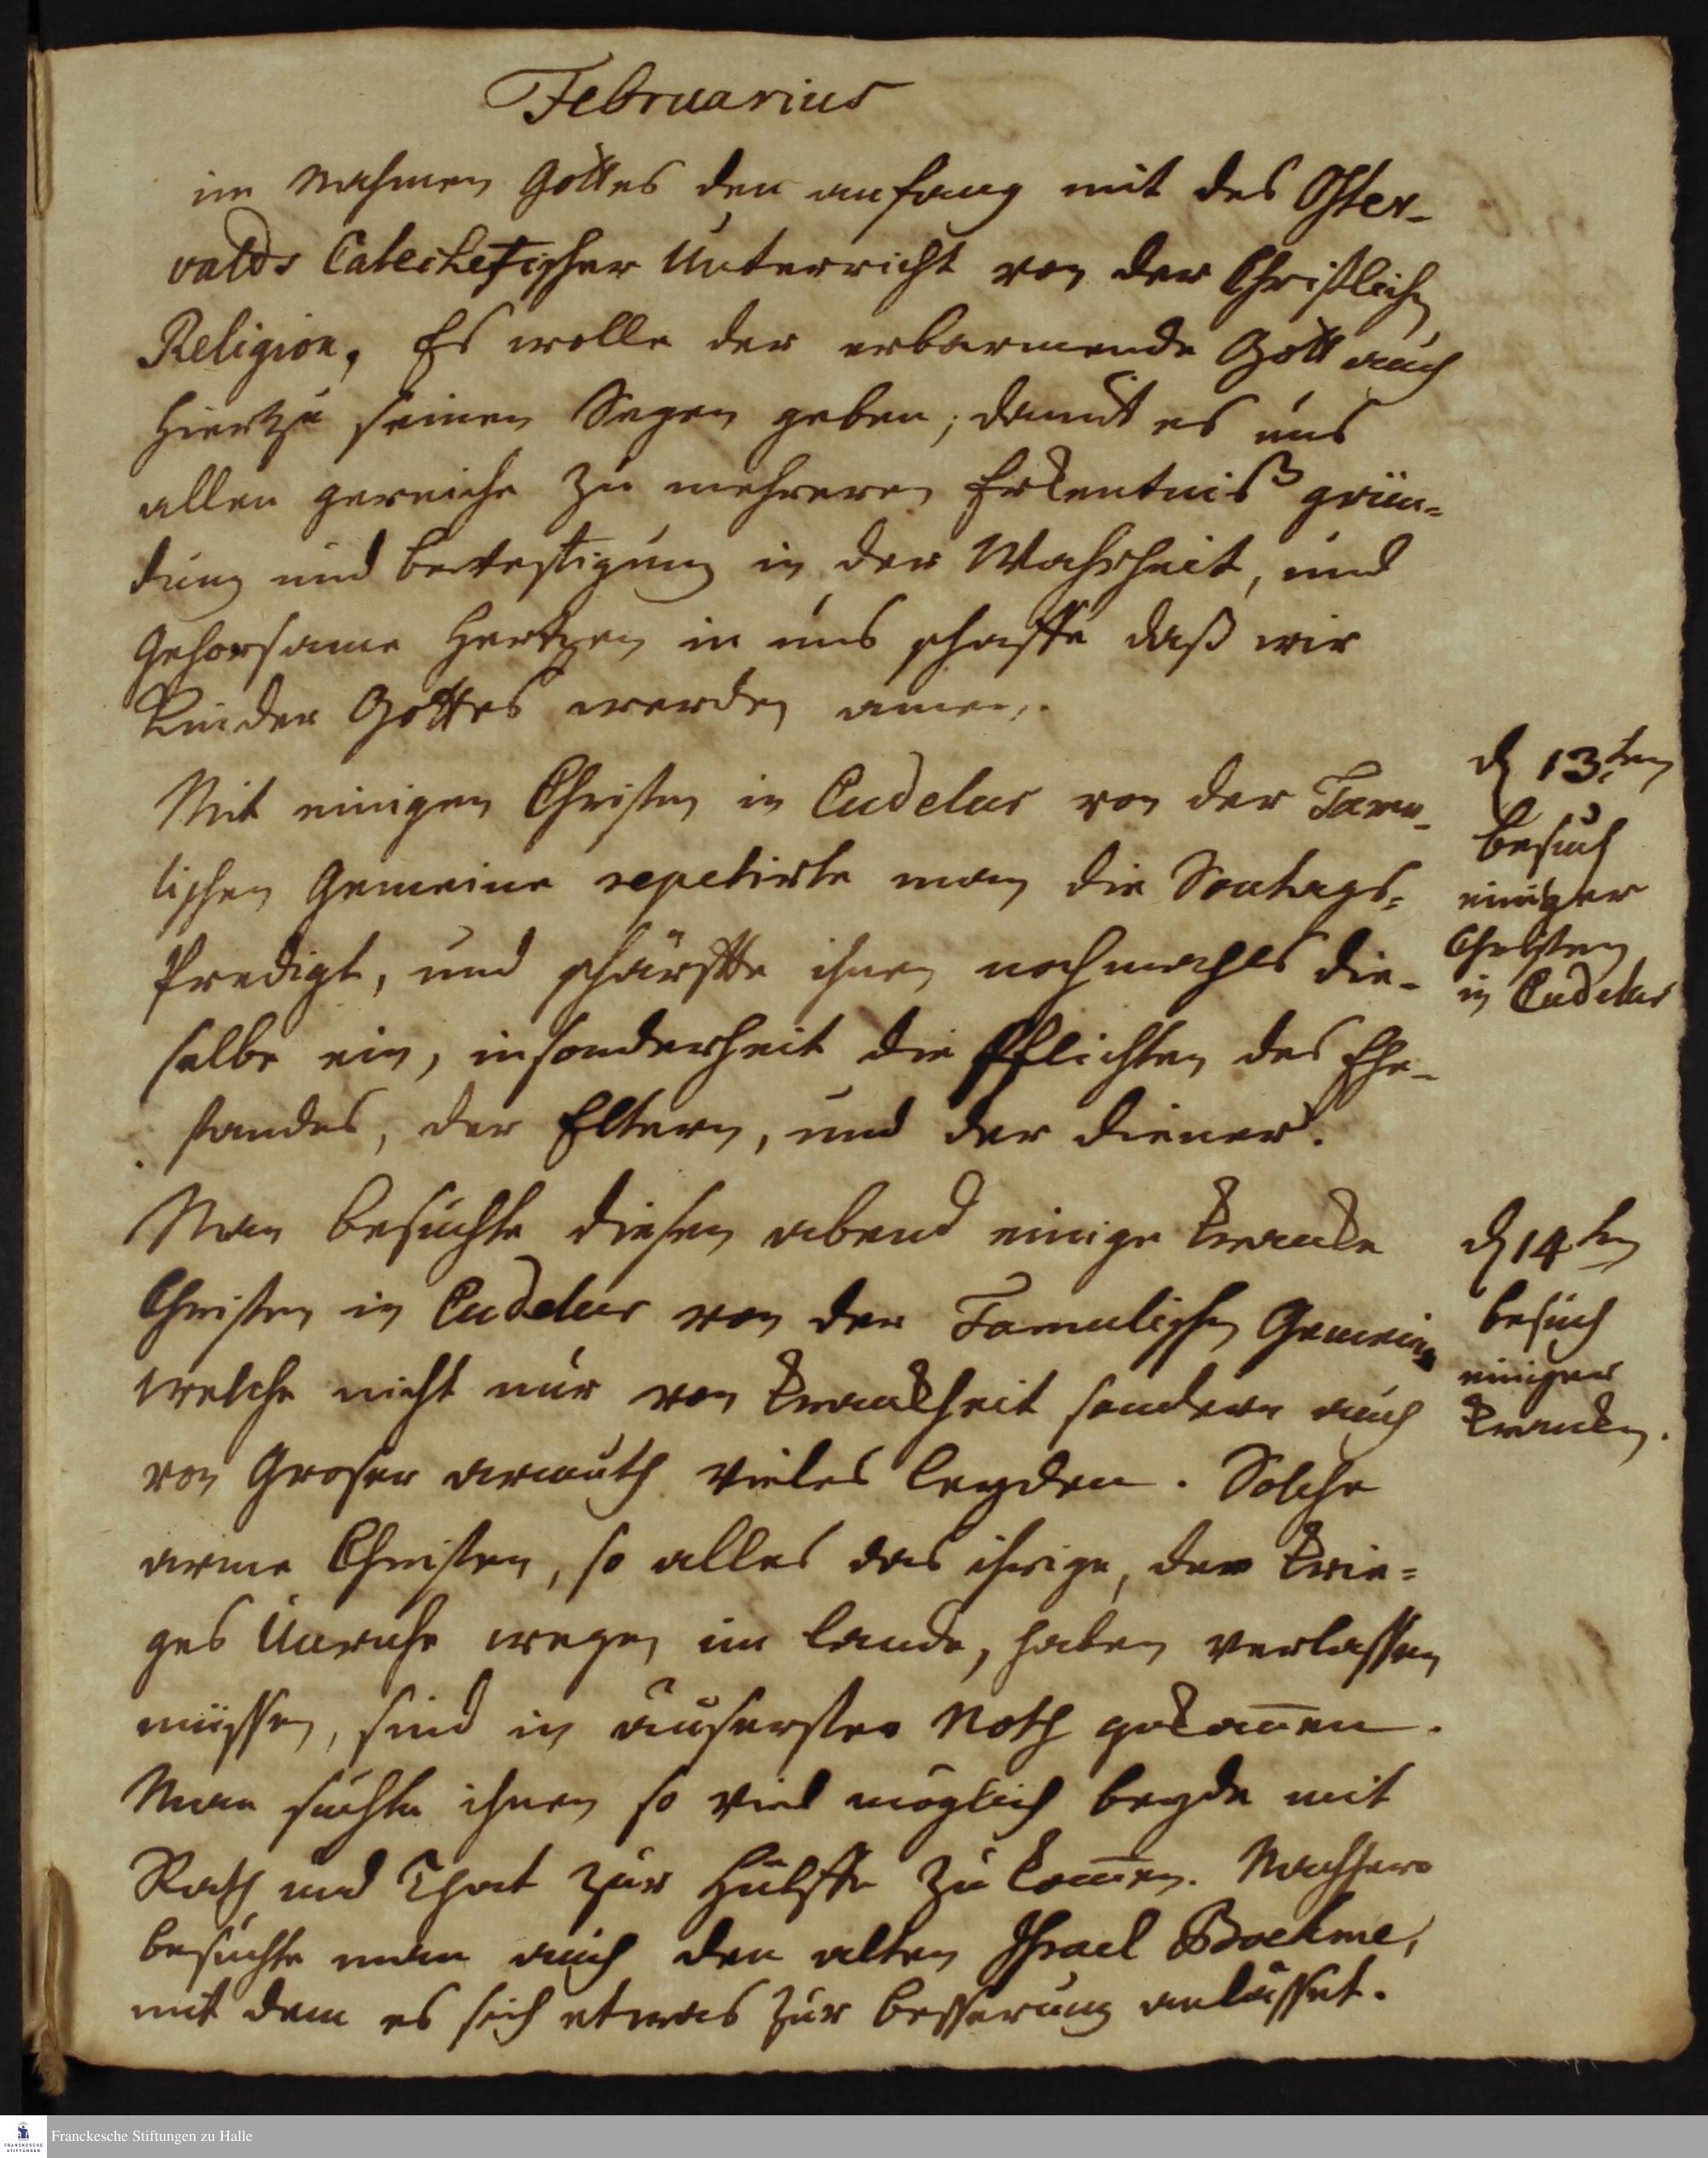 Februarius
im Nahmen Gottes den anfang mit des Oster-
valds Catechetischer Unterricht von der Christlichen
Religion, Es wolle der erbarmende Gott auch
hierzu seinen Segen geben, damit es uns
allen gereiche zu mehreren Erkentniß grün-
dung und bevestigung in der Wahrheit, und
Gehorsame Hertzen in uns schaffe daß wir
Kinder Gottes werden amen.
Mit einigen Christen in Cudelur von der Tamu-
lischen Gemeine repetirte man die Sontags-
Predigt, und schärffte ihnen nochmahls die-
selbe ein, insonderheit die Pflichten des Ehe-
standes, der Eltern, und der diener.
d 13ten
besuch
einiger
Christen
in Cudelur
Man besuchte diesen abend einige krancke
Christen in Cudelur von der Tamulischen Gemein
welche nicht nur von kranckheit sondern auch
von Groser armuth vieles leyden. Solche
arme Christen, so alles das ihrige, der krie-
ges Unruhe wegen im lande, haben verlassen
müssen, sind in äusersten Noth gekommen.
Man suchte ihnen so viel möglich beyde mit
Rath und That zur Hülffe zu kommen. Nachhero
besuchte man auch den alten Israel Boehme,
mit dem es sich etwas zur besserung anlässet.
d 14ten
besuch
einiger
krancken.
Franckesche Stiftungen zu Halle
FRANCKESCHE
STIFTUNGEN